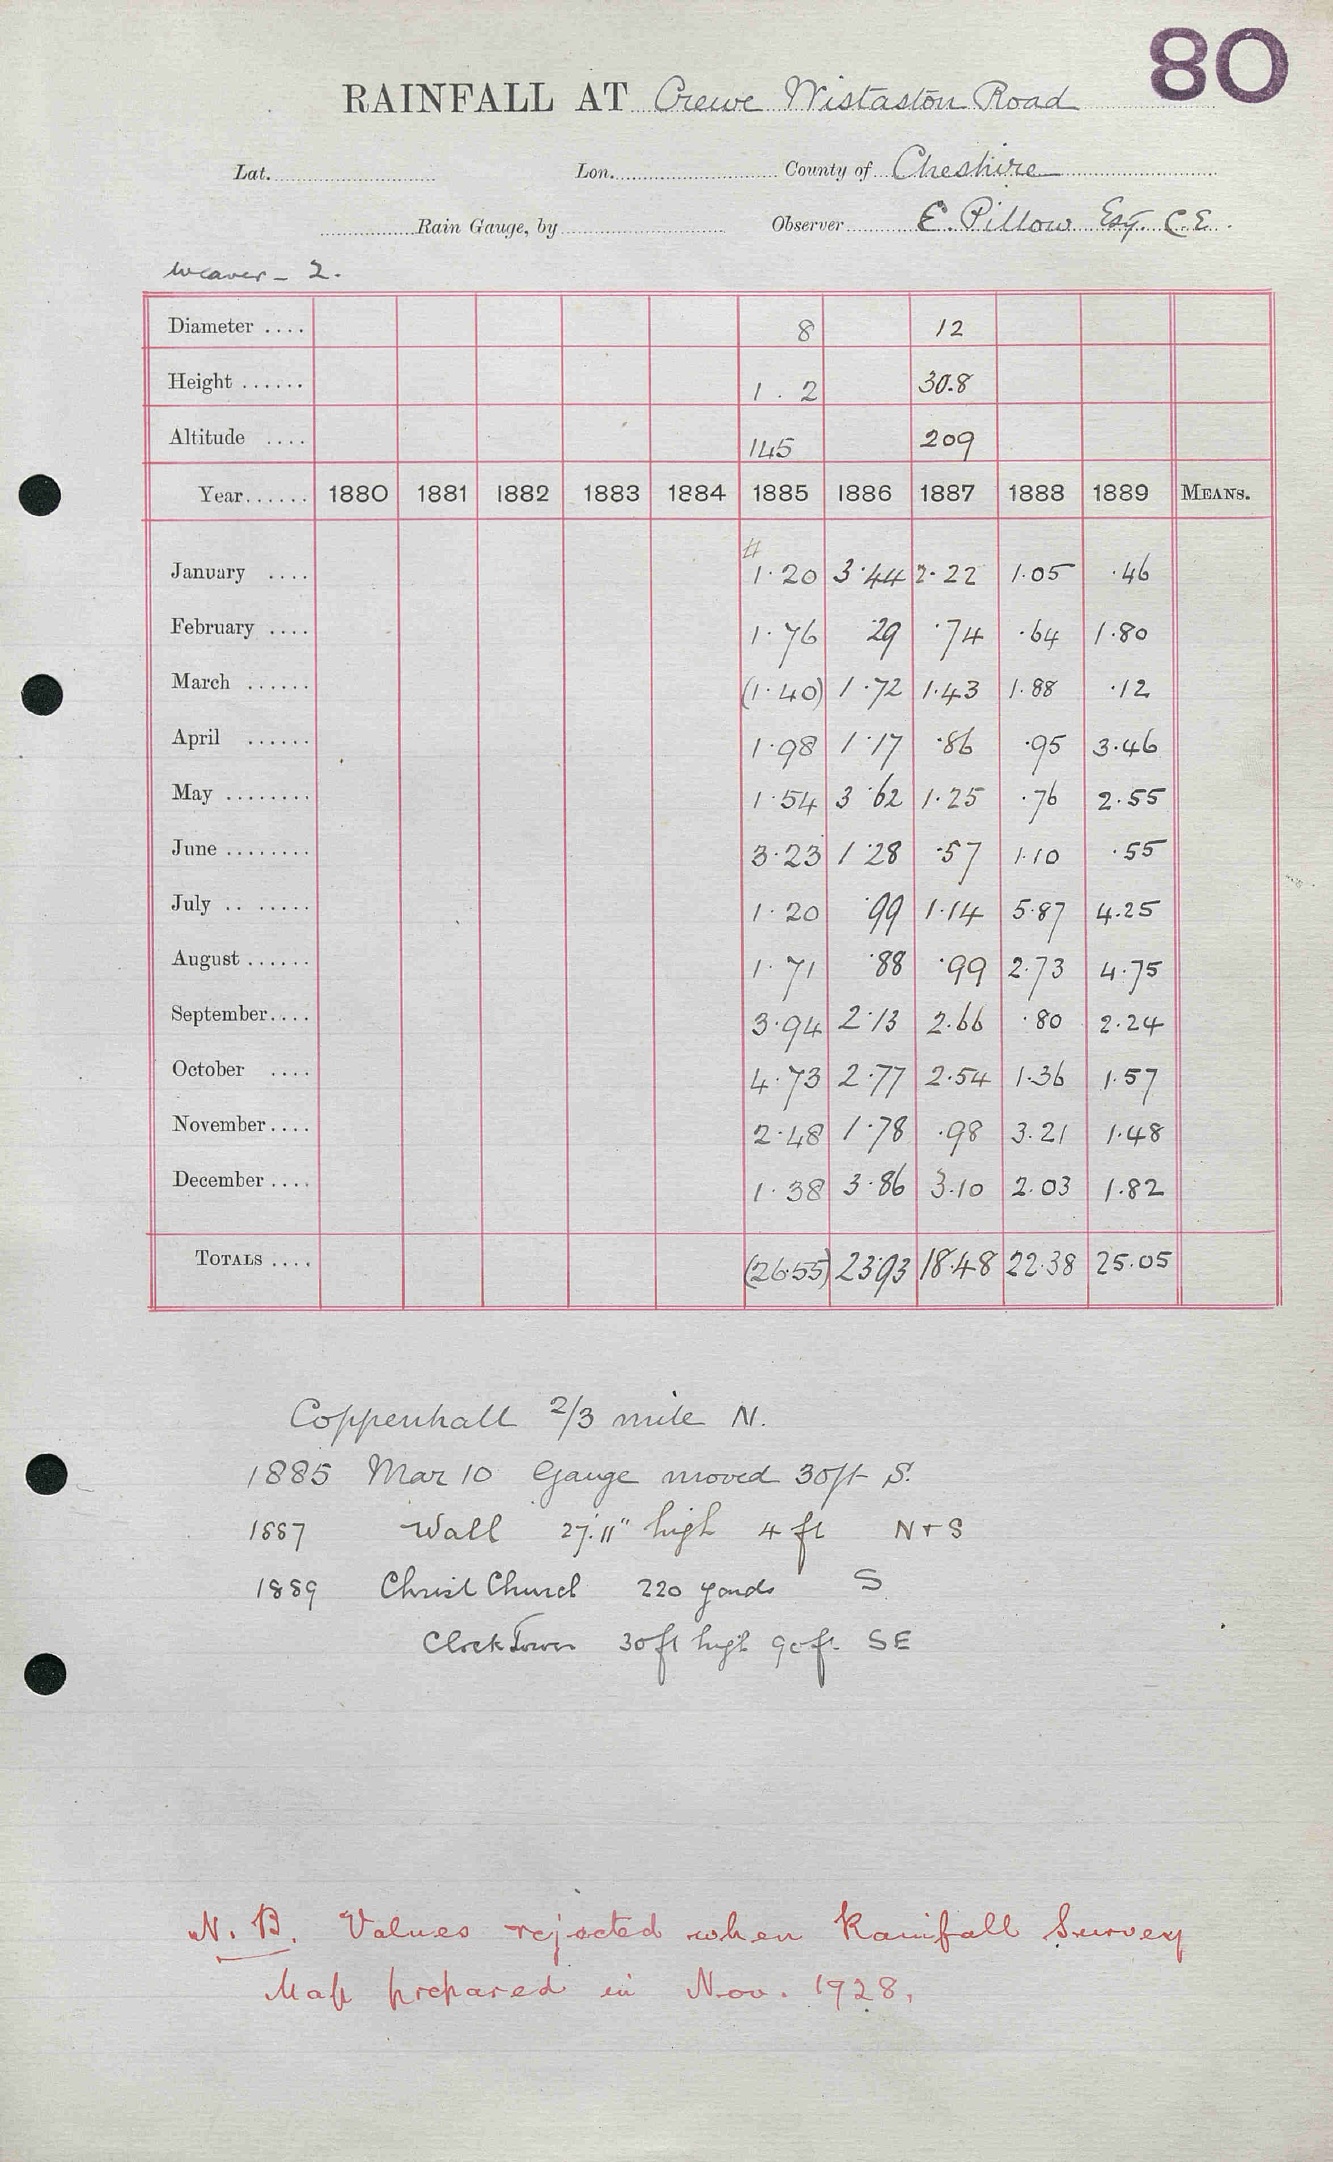 80
RAINFALL AT Crewe Wistaston Road
Lat. Lon. County of Cheshire
Rain Gauge, by Observer E. Pillow Esq. C.E.
Weaver - 2.
Diameter .... 8 12
Height ...... 1 . 2 30.8
Altitude .... 145 209
Year...... 1880 1881 1882 1883 1884 1885 1886 1887 1888 1889 MEANS.
#
January .... 1.20 3.44 2.22 1.05 .46
February .... 1.76 .29 .74 .64 1.80
March ...... (1.40) 1.72 1.43 1.88 .12
April ...... 1.98 1.17 .86 .95 3.46
May ........ 1.54 3.62 1.25 .76 2.55
June ........ 3.23 1.28 .57 1.10 .55
July .. ...... 1.20 .99 1.14 5.87 4.25
August ...... 1.71 .88 .99 2.73 4.75
September.... 3.94 2.13 2.66 .80 2.24
October .... 4.73 2.77 2.54 1.36 1.57
November.... 2.48 1.78 .98 3.21 1.48
December .... 1.38 3.86 3.10 2.03 1.82
TOTALS .... (26.55) 23.93 18.48 22.38 25.05
Coppenhall 2/3 mile N.
1885 Mar 10 Gauge moved 30ft S.
1887 Wall 27'.11" high 4 ft N + S
1889 Christ Church 220 yards S
Clock Tower 30ft high 90ft. SE
N.B. Values rejected when Rainfall Survey
Map prepared in Nov. 1928.